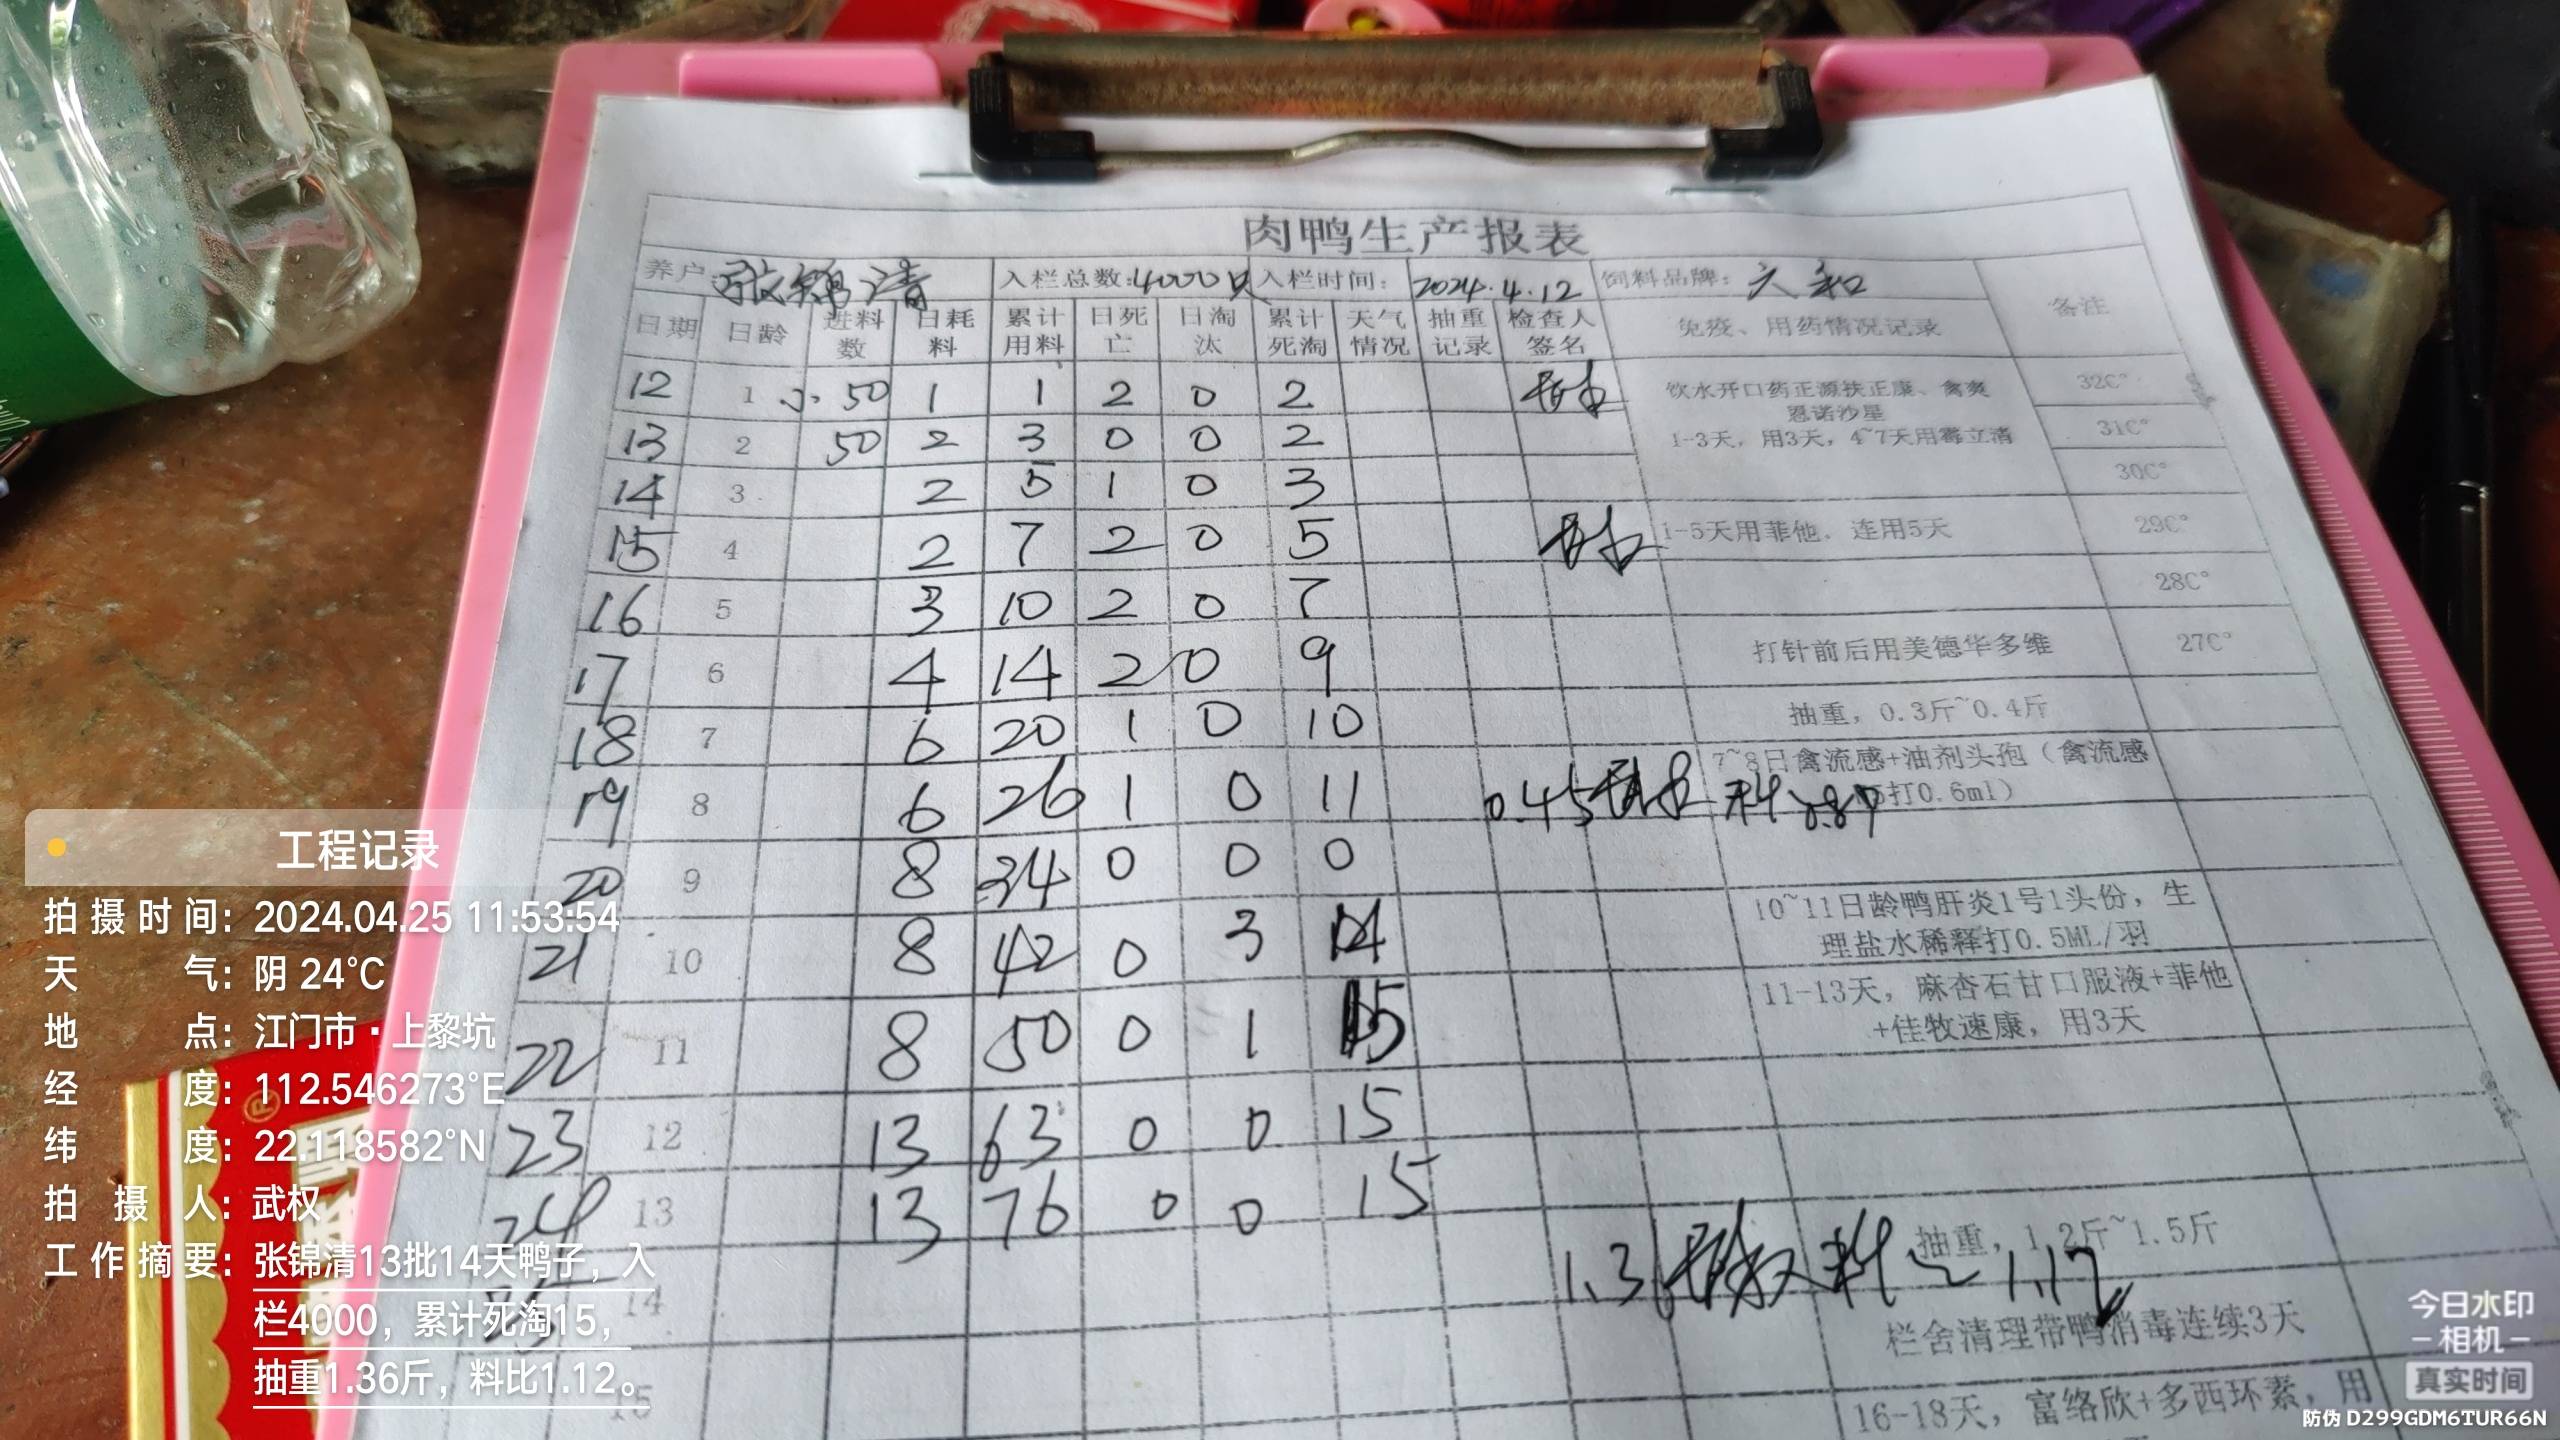 肉鸭生产报表
养户 张锦清 入栏总数:4000只 入栏时间: 2024.4.12 饲料品牌: 六和
日期 日龄 进料数 日耗料 累计用料 日死亡 日淘汰 累计死淘 天气情况 抽重记录 检查人签名 免疫、用药情况记录 备注
12 1 小 50 1 1 2 0 2 饮水开口药正源扶正康、禽爽 32C°
恩诺沙星
13 2 50 2 3 0 0 2 1-3天,用3天,4~7天用霉立清 31C°
14 3 2 5 1 0 3 30C°
15 4 2 7 2 0 5 1-5天用菲他,连用5天 29C°
16 5 3 10 2 0 7 28C°
17 6 4 14 2 0 9 打针前后用美德华多维 27C°
18 7 6 20 1 0 10 抽重,0.3斤~0.4斤
7~8日禽流感+油剂头孢(禽流感
19 8 6 26 1 0 11 0.45 料 0.87 打0.6ml)
20 9 8 34 0 0 0
10~11日龄鸭肝炎1号1头份,生
21 10 8 42 0 3 14 理盐水稀释打0.5ML/羽
11-13天,麻杏石甘口服液+菲他
22 11 8 50 0 1 15 +佳牧速康,用3天
23 12 13 63 0 0 15
24 13 13 76 0 0 15 抽重,1.2斤~1.5斤
14 1.36 料 1.12
栏舍清理带鸭消毒连续3天
15 16-18天,富络欣+多西环素,用
工程记录
拍摄时间: 2024.04.25 11:53:54
天气: 阴 24°C
地点: 江门市·上黎坑
经度: 112.546273°E
纬度: 22.118582°N
拍摄人: 武权
工作摘要: 张锦清13批14天鸭子,入
栏4000,累计死淘15,
抽重1.36斤,料比1.12。
今日水印
相机
真实时间
防伪 D299GDM6TUR66N